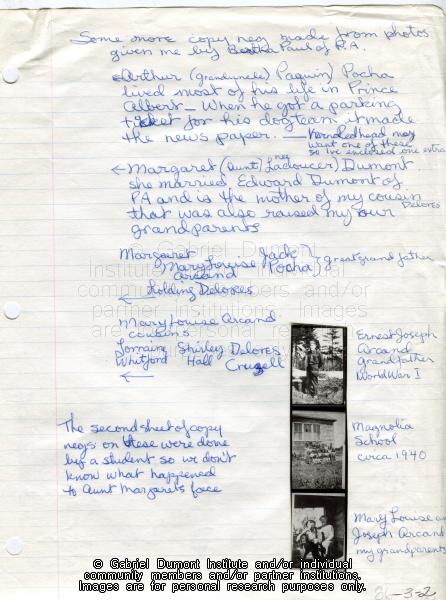 Some more copy negs made from photos
given me by Bertha Paul of P.A.
Arthur (granduncle) Paquin) Pocha
lived most of his life in Prince
Albert — When he got a parking
ticket for his dogteam it made
the news paper. — Redhead may
want one of these
so I've enclosed one extra
← Margaret (Aunt) nee Ladoucer) Dumont
she married Edward Dumont of
PA and is the mother of my cousin
Delores
that was also raised my our
grandparents
Margaret Jack
Mary Louise Pocha) great grand father
Arcand
holding Delores
←
Mary Louise Arcand
cousins
Lorraine Shirley Delores
Whitford Hall
←
Ernest Joseph
Arcand
grandfather
World War I
The second sheet of copy
negs on these were done
by a student so we don't
know what happened
to Aunt Margarets face
Magnolia
School
circa 1940
Mary Louise an
Joseph Arcand
my grandparents
© Gabriel Dumont
Institute and/or individual
community members and/or
partner institutions. Images
are for personal research purposes
© Gabriel Dumont Institute and/or individual
community members and/or partner institutions.
Images are for personal research purposes only.